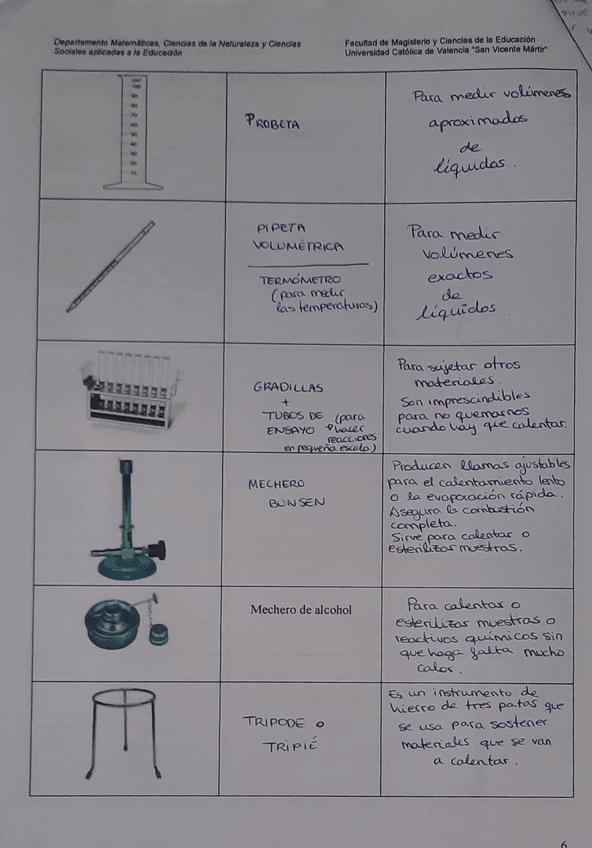 Departamento Matemáticas, Ciencias de la Naturaleza y Ciencias
Sociales aplicadas a la Educación
Facultad de Magisterio y Ciencias de la Educación
Universidad Católica de Valencia "San Vicente Mártir"
100
90
80
70
60
50
40
30
20
10
PROBETA
Para medir volúmenes
aproximados
de
líquidos.
PIPETA
VOLUMÉTRICA
TERMÓMETRO
(para medir
las temperaturas)
Para medir
volúmenes
exactos
de
líquidos.
GRADILLAS
+
TUBOS DE (para
ENSAYO hacer
reacciones
en pequeña escala)
Para sujetar otros
materiales.
Son imprescindibles
para no quemarnos
cuando hay que calentar.
MECHERO
BUNSEN
Producen llamas ajustables
para el calentamiento lento
o la evaporación rápida.
Asegura la combustión
completa.
Sirve para calentar o
esterilizar muestras.
Mechero de alcohol
Para calentar o
esterilizar muestras o
reactivos químicos sin
que haga falta mucho
calor.
TRIPODE o
TRIPIÉ
Es un instrumento de
hierro de tres patas que
se usa para sostener
materiales que se van
a calentar.
6